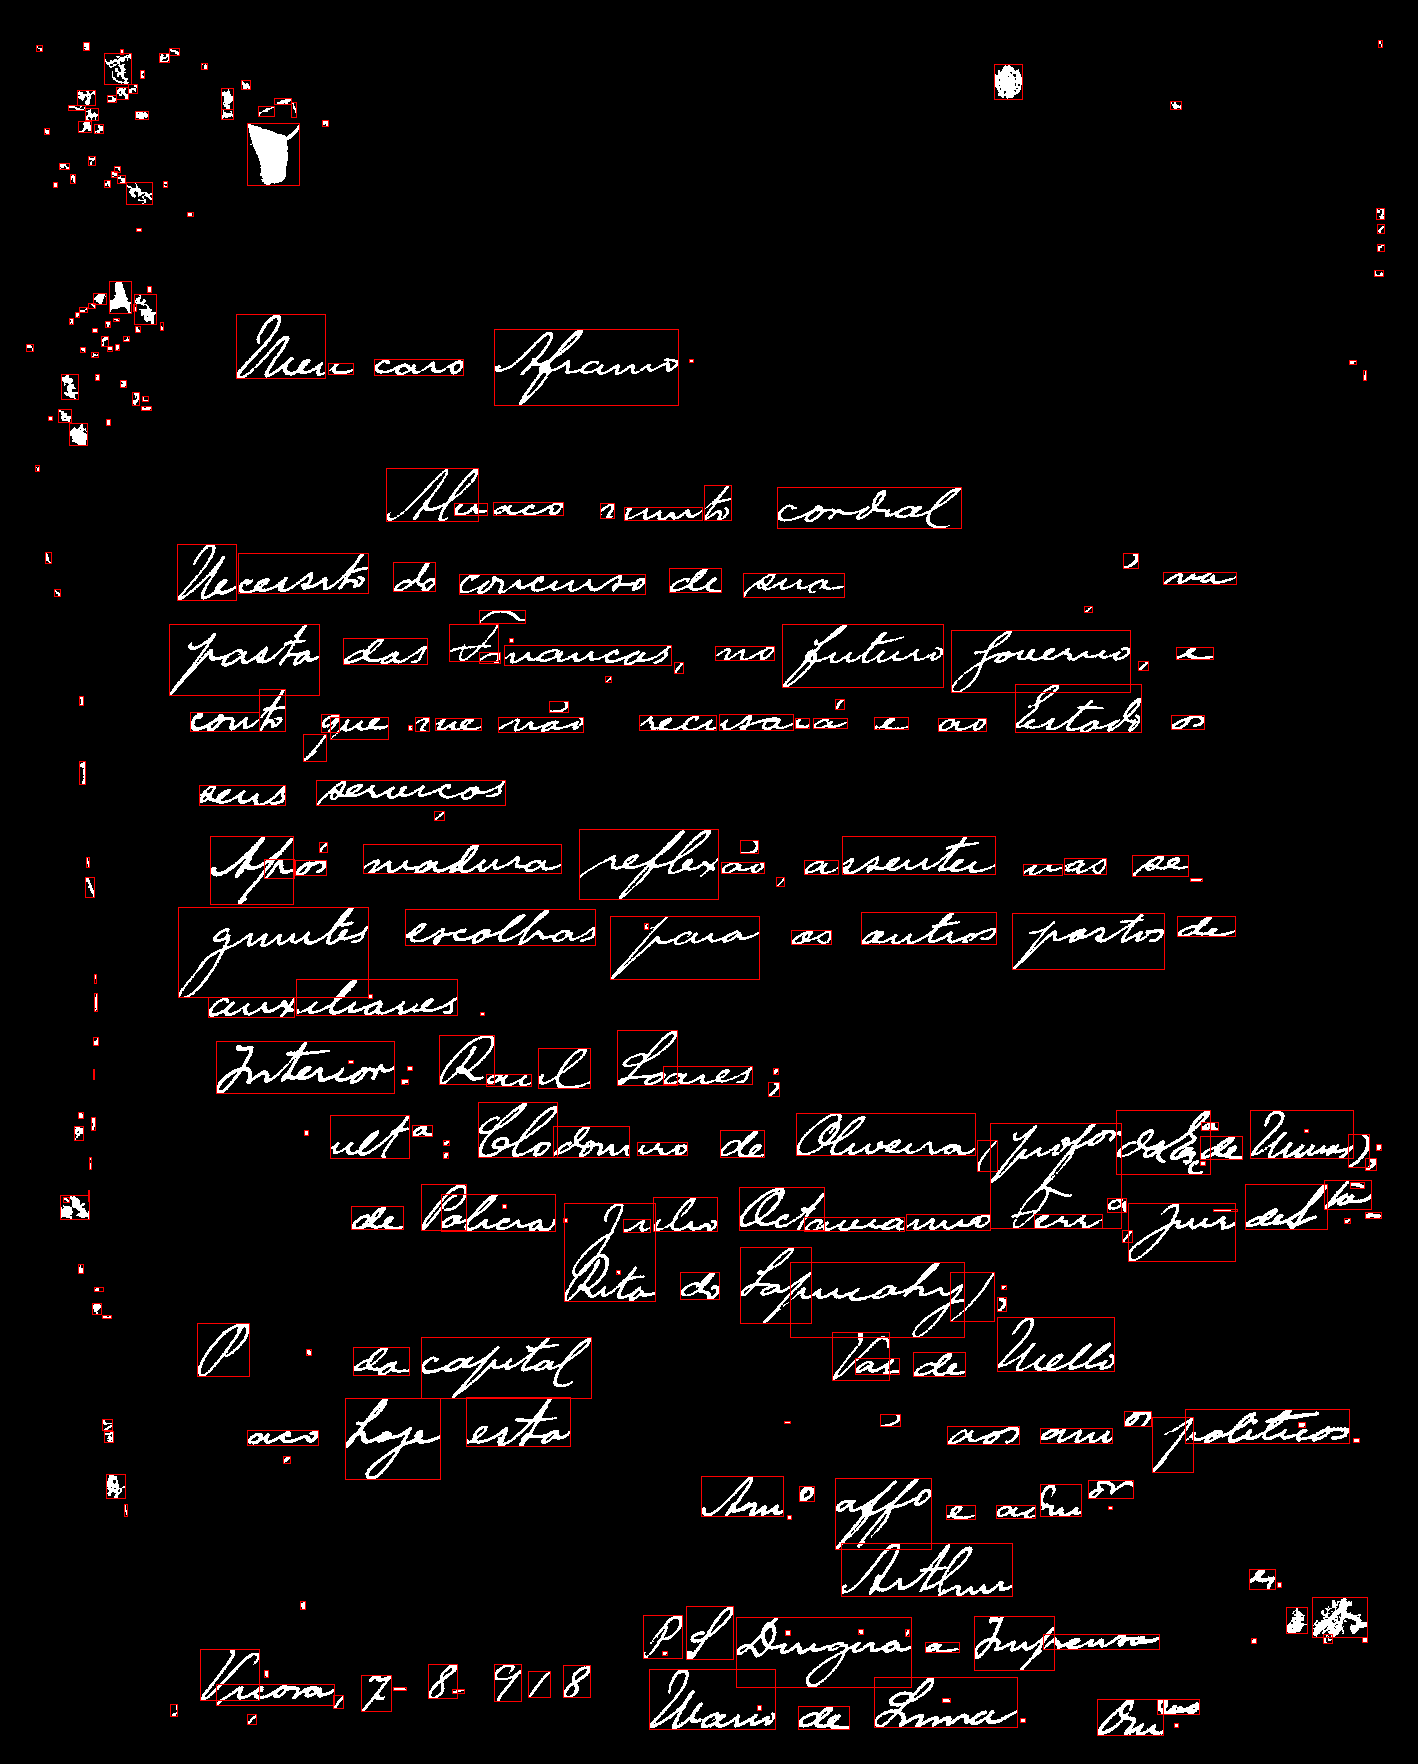 Meu caro Afranio.
Abraço muito cordial
Necessito do concurso de sua
pasta das Finanças, no futuro governo, e
conto que me não recusará e ao Estado os
seus serviços
Após madura reflexão, assentei nas se-
guintes escolhas para os outros postos de
auxiliares.
Interior: Raul Soares;
Clodomiro de Oliveira, de
de Policia Julio Octaviano Ferr.a Juiz
Rita do Sapucahy);
P da capital Vaz de Mello
aço hoje esta aos politicos.
Am.o affo e
Arthur
P. S. Dirigirá a Imprensa
Viçosa, 7-8-918
Mario de Lima.